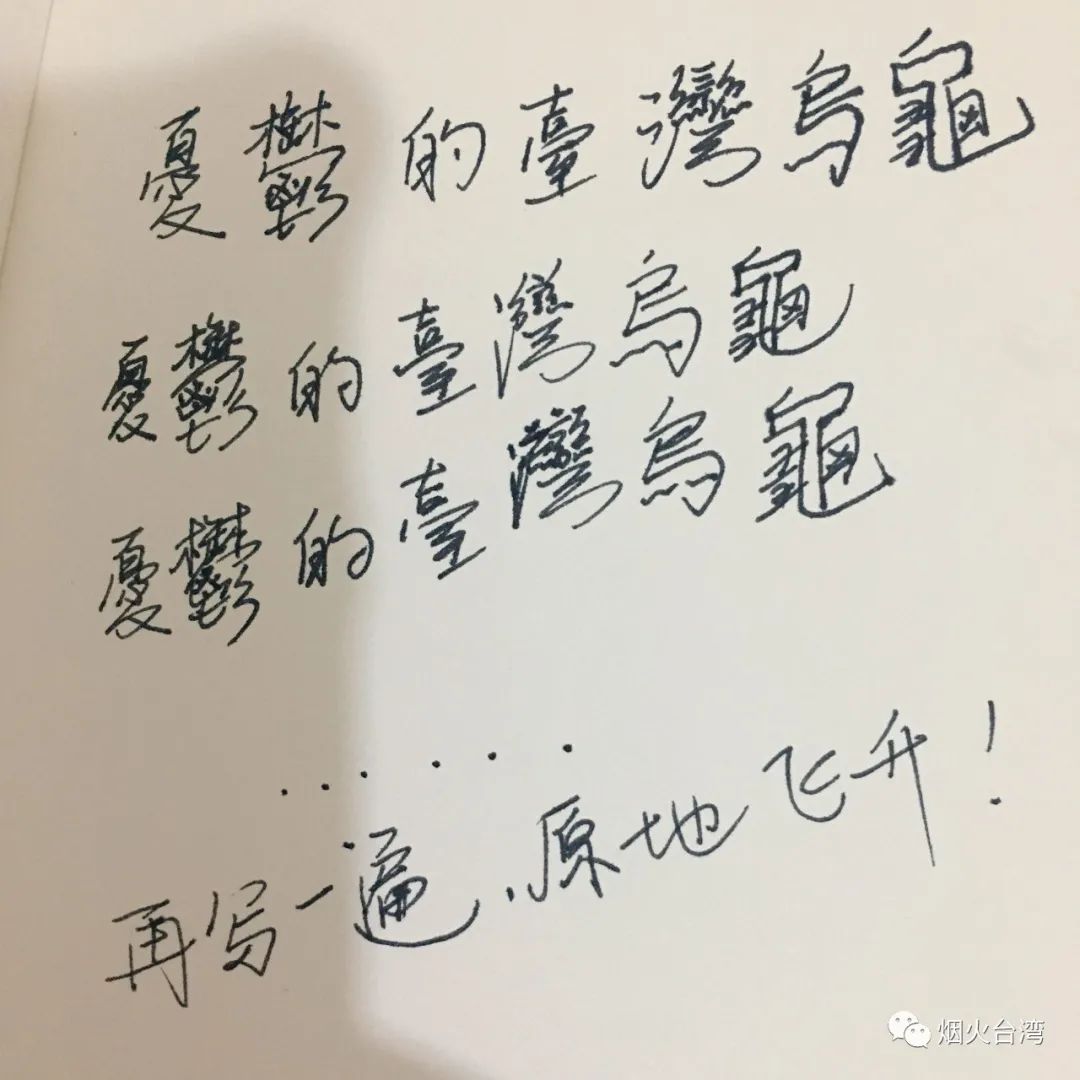 憂鬱的臺灣烏龜
憂鬱的臺灣烏龜
憂鬱的臺灣烏龜
......
再写一遍,原地飞升!
烟火台湾